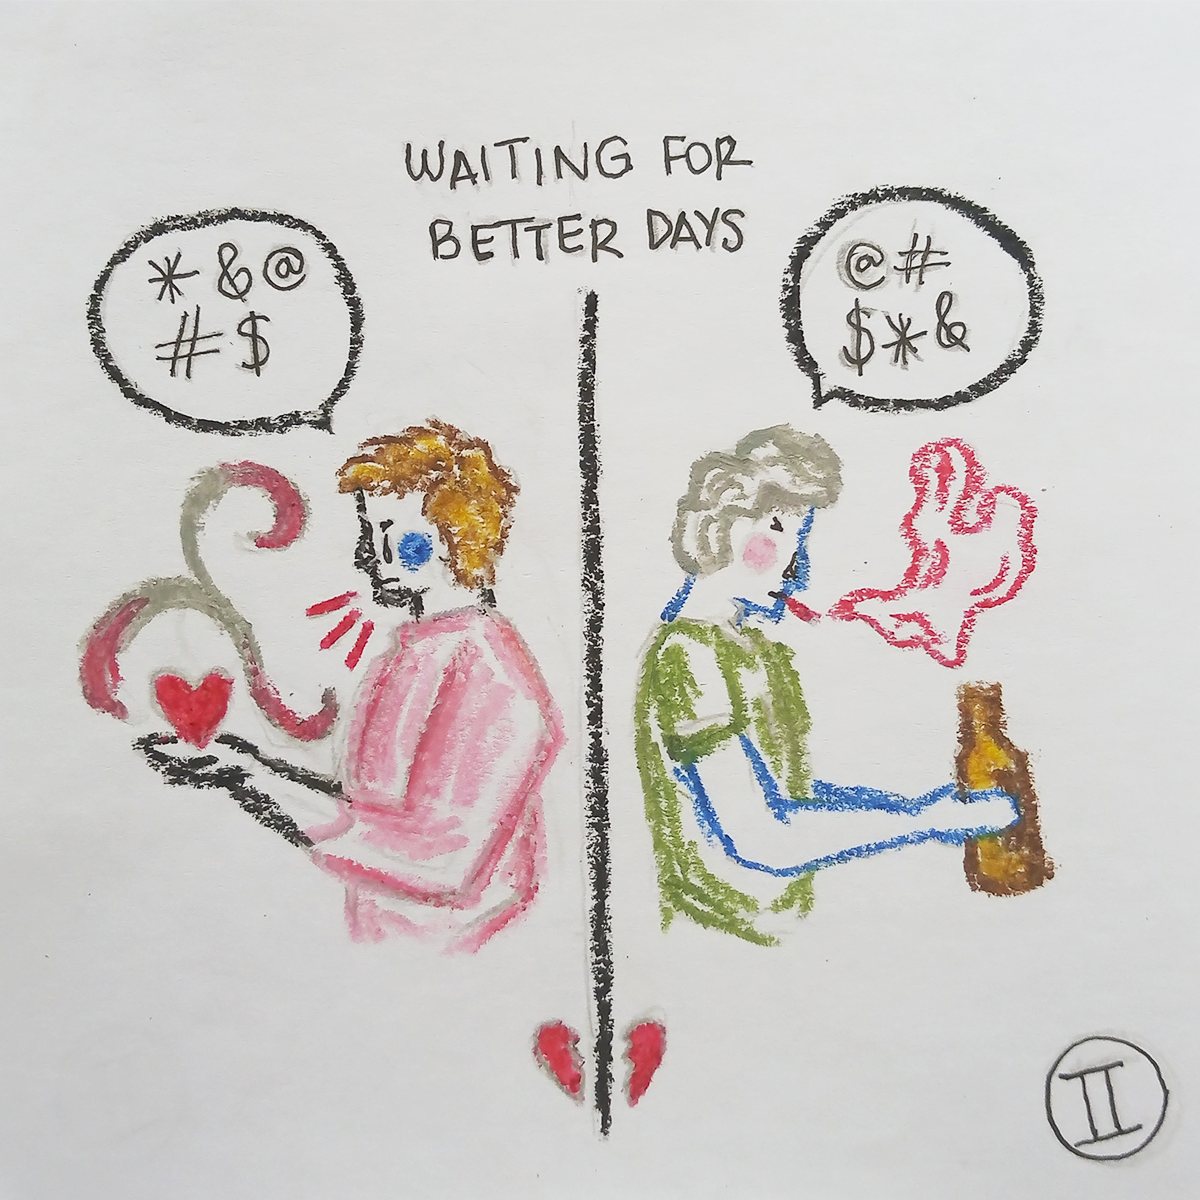 WAITING FOR
BETTER DAYS
*&@
#$
@#
$*&
II